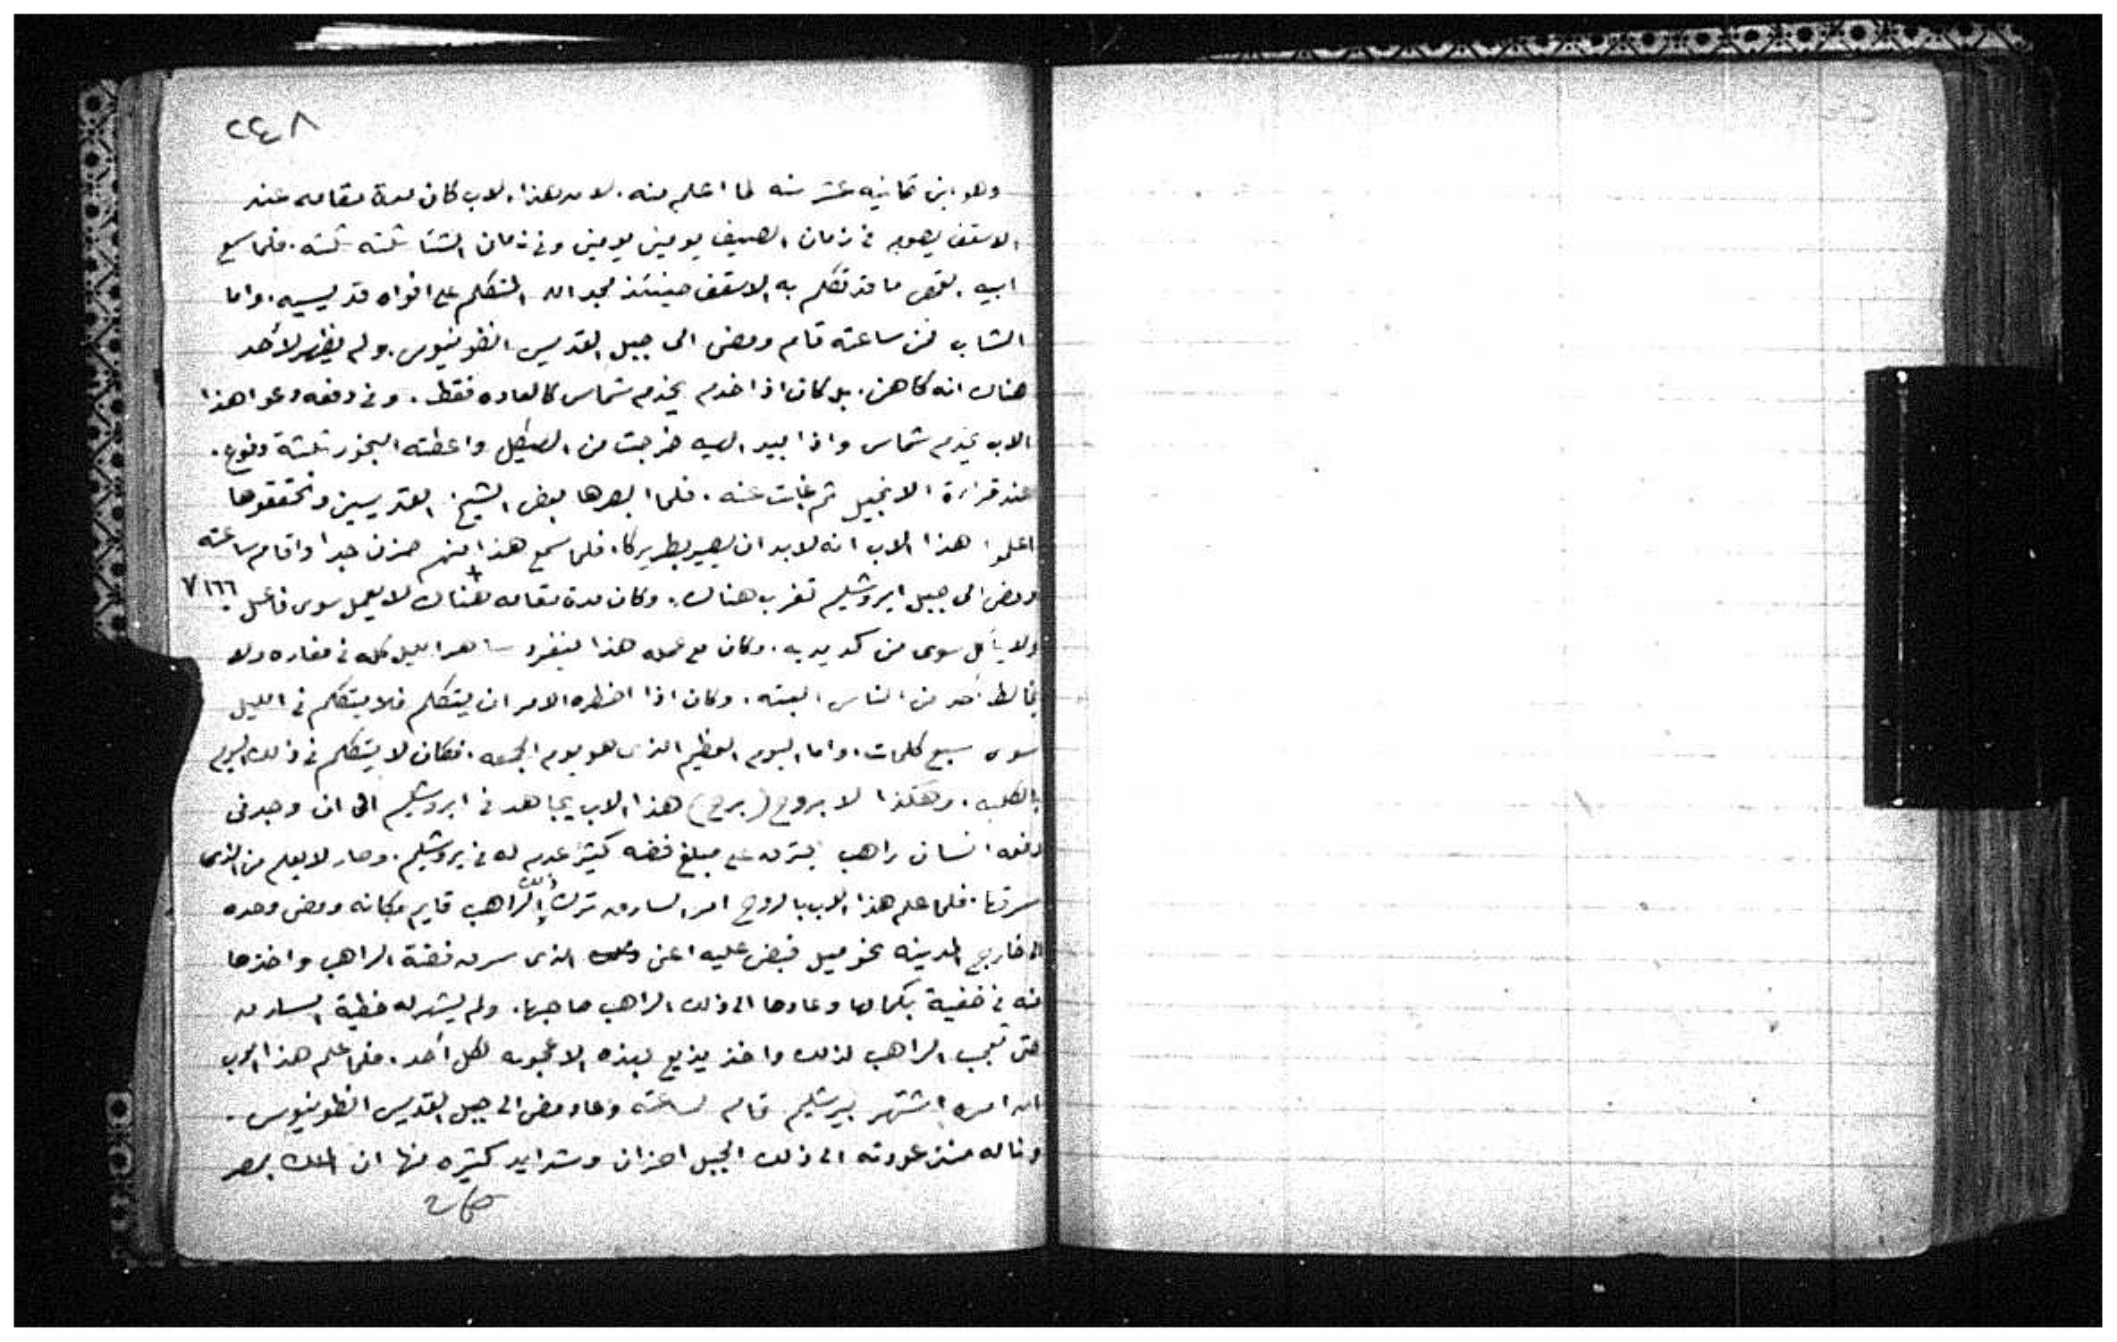 ٢٤٨
وهو ابن ثمانيه عشر سنه لما اعلم منه. لان هذا الاب كان مدة مقامه عند
الاسقف يصوم فى زمان الصيف يومين يومين وفى زمان الشتا ثلثه ثلثه. فلما سمع
ابيه القمص ما قد تكلم به الاسقف حينئذ مجد الله المتكلم على افواه قديسيه. واما
الشاب فمن ساعته قام ومضى الى جبل القديس انطونيوس. ولم يظهر لأحد
هناك انه كاهن. بل كان اذا خدم يخدم شماس كالعاده فقط. وفى دفعه دعوا هذا
الاب يخدم شماس واذا بيد اليه خرجت من الهيكل واعطته البخور ثلثة دفوع.
عند قراءة الانجيل ثم غابت عنه. فلما ابصرها بعض الشيخ القديسين وتحققوها
اعلموا هذا الاب انه لابد ان يصير بطريركا. فلما سمع هذا منهم حزن جدا واقام ساعته
ومضى الى جبل ايروشليم تغرب هناك. وكان مدة مقامه هناك لا يعمل سوى فاعل ١٦٦ ٧
ولا يأكل سوى من كد يديه. وكان مع عمله هذا ينفرد ساهرا الليل كله فى مغاره ولا
يخالط أحد من الناس البته. وكان اذا اضطره الامر ان يتكلم فلا يتكلم فى الليل
سوى سبع كلمات. واما اليوم العظيم الذى هو يوم الجمعه. فكان لا يتكلم فى ذلك اليوم
بالكليه. وهكذا لا بروح (برح) هذا الاب يجاهد فى ايروشليم الى ان وجد فى
دفعه انسان راهب على مبلغ فضه كثير عدم له فى يروشليم. وصار لا يعلم من الذى
سرقها. فلما علم هذا الاب بالروح امر السارق ترك ذلك الراهب قايم مكانه ومضى وحده
الى خارج المدينه نحو ميل قبض عليه اعنى الذى سرق فضة الراهب واخذها
منه فى خفية بكمالها وعادها الى ذلك الراهب صاحبها. ولم يشهر له خطية السارق
حتى تعجب الراهب لذلك واخذ يذيع بهذه الاعجوبه لكل أحد. فلما علم هذا الاب
ان امره اشتهر بيرشليم قام لساعته وعاد مضى الى جبل القديس انطونيوس.
وناله منذ عودته الى ذلك الجبل احزان وشدايد كثيره منها ان الملك بمصر